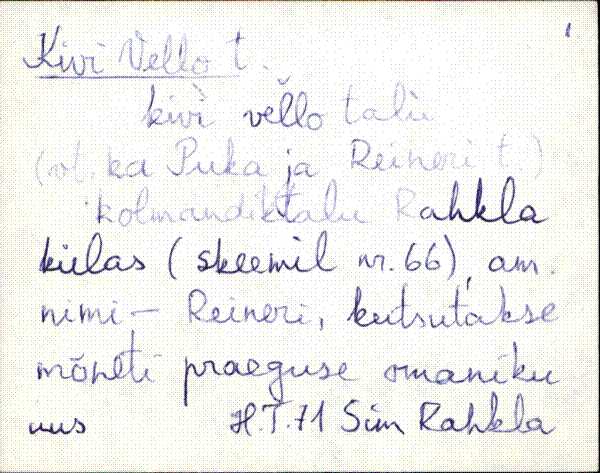 1
Kivi Vello t.
kivì vèl̆lo talù
(vt. ka Puka ja Reineri t.)
kolmandiktalu Rahkla
külas (skeemil nr. 66), am.
nimi – Reineri, kutsutakse
mõneti praeguse omaniku
H.T. 71 Sim Rahkla